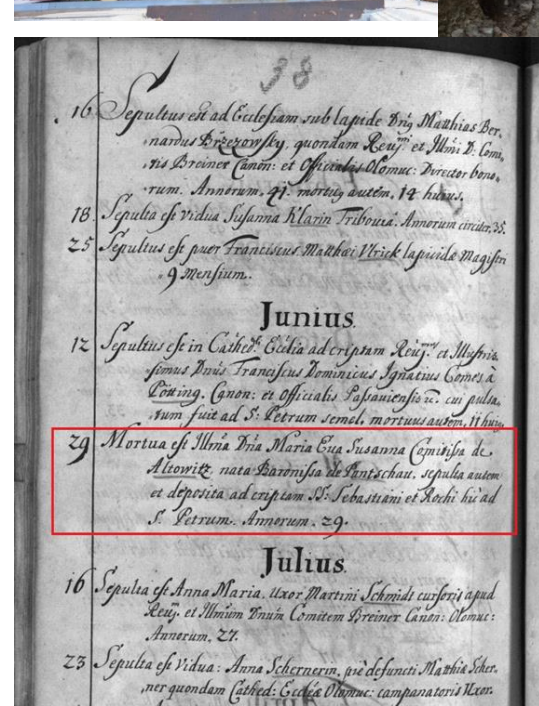 38
16 Sepultus est ad Ecclesiam sub lapide Dnq Matthias Ber,
nardus Brzezowsky, quondam Reuj͠mi et Illmi D: Comi,
tis Breiner Canon: et Officialis Olomuc: Director bono,
rum. Annorum. 41. mortuq autem, 14 hujus.
18. Sepulta est vidua Susanna Klarin Tribouiā. Annorum circiter. 35.
25 Sepultus est puer Franciscus Matthæi Vlrick lapicidæ Magistri
9 Mensium.
Junius.
12 Sepultus est in Cathed: Ecclīa ad criptam Reuj͠ et Illustris,
simus Dnūs Franciscus Dominicus Ignatius Comes à
Pötting. Canon: et Officialis Passauiensis cui pulsa,
tum fuit ad S: Petrum semel, mortuus autem, 11 huiq.
29 Mortua est Illm̄a Dn̄a Maria Eua Susanna Comitissa de
Altowitz nata Baronissa de Pantschau, sepulta autem
et deposita ad criptam SS: Sebastiani et Rochi hic ad
S. Petrum. Annorum. 29.
Julius.
16 Sepulta est Anna Maria. Uxor Martini Schmidt cursoris apud
Reuj: et Illmum Dnum Comitem Breiner Canon: Olomuc:
Annorum. 27.
23 Sepulta est Vidua: Anna Schernerin, piè defuncti Matthiæ Scher,
ner quondam Cathed: Eccliæ Olomuc: campanatoris Uxor.